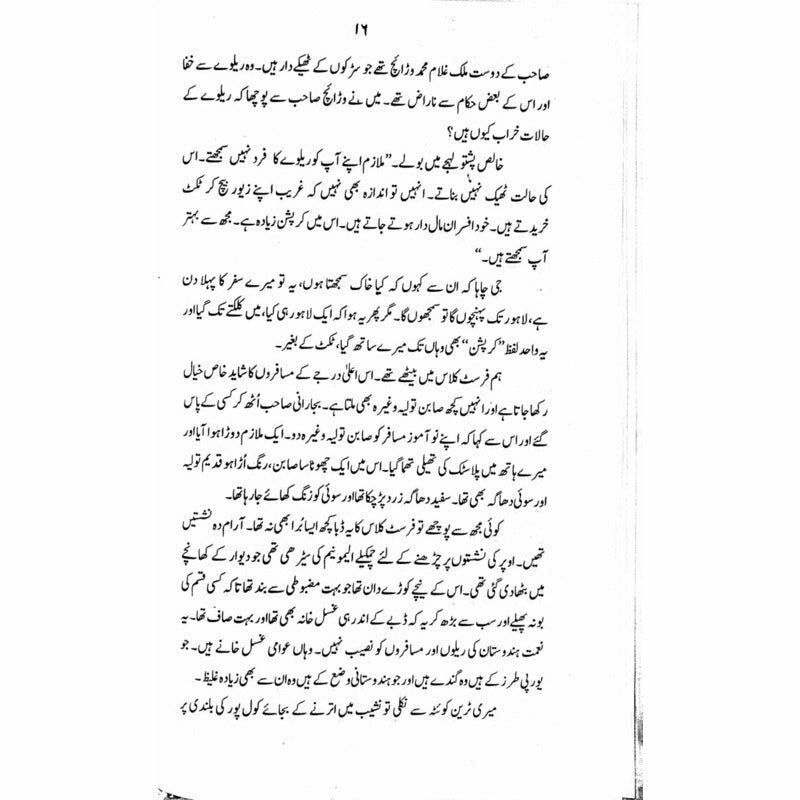 ۱۶
صاحب کے دوست ملک غلام محمد وڑائچ تھے جو سڑکوں کے ٹھیکے دار ہیں۔ وہ ریلوے سے خفا
اور اس کے بعض حکام سے ناراض تھے۔ میں نے وڑائچ صاحب سے پوچھا کہ ریلوے کے
حالات خراب کیوں ہیں؟
خالص پشتو لہجے میں بولے۔ ”ملازم اپنے آپ کو ریلوے کا فرد نہیں سمجھتے۔ اس
کی حالت ٹھیک نہیں بناتے۔ انہیں تو اندازہ بھی نہیں کہ غریب اپنے زیور بیچ کر ٹکٹ
خریدتے ہیں۔ خود افسران مال دار ہوتے جاتے ہیں۔ اس میں کرپشن زیادہ ہے۔ مجھ سے بہتر
آپ سمجھتے ہیں۔“
جی چاہا کہ ان سے کہوں کہ کیا خاک سمجھتا ہوں، یہ تو میرے سفر کا پہلا دن
ہے، لاہور تک پہنچوں گا تو سمجھوں گا۔ مگر پھر یہ ہوا کہ ایک لاہور ہی کیا، میں کلکتے تک گیا اور
یہ واحد لفظ ”کرپشن“ بھی وہاں تک میرے ساتھ گیا، ٹکٹ کے بغیر۔
ہم فرسٹ کلاس میں بیٹھے تھے۔ اس اعلیٰ درجے کے مسافروں کا شاید خاص خیال
رکھا جاتا ہے اور انہیں کچھ صابن تولیہ وغیرہ بھی ملتا ہے۔ بجارانی صاحب اُٹھ کر کسی کے پاس
گئے اور اس سے کہا کہ اپنے نو آموز مسافر کو صابن تولیہ وغیرہ دو۔ ایک ملازم دوڑا ہوا آیا اور
میرے ہاتھ میں پلاسٹک کی تھیلی تھما گیا۔ اس میں ایک چھوٹا سا صابن، رنگ اُڑا ہو قدیم تولیہ
اور سوئی دھاگہ بھی تھا۔ سفید دھاگہ زرد پڑ چکا تھا اور سوئی کو زنگ کھائے جا رہا تھا۔
کوئی مجھ سے پوچھے تو فرسٹ کلاس کا یہ ڈبا کچھ ایسا بُرا بھی نہ تھا۔ آرام دہ نشستیں
تھیں۔ اوپر کی نشستوں پر چڑھنے کے لئے چمکیلے المونیم کی سیڑھی تھی جو دیوار کے کھانچے
میں بٹھا دی گئی تھی۔ اس کے نیچے کوڑے دان تھا جو بہت مضبوطی سے بند تھا تاکہ کسی قسم کی
بو نہ پھیلے اور سب سے بڑھ کر یہ کہ ڈبے کے اندر ہی غسل خانہ بھی تھا اور بہت صاف تھا۔ یہ
نعمت ہندوستان کی ریلوں اور مسافروں کو نصیب نہیں۔ وہاں عوامی غسل خانے ہیں۔ جو
یورپی طرز کے ہیں وہ گندے ہیں اور جو ہندوستانی وضع کے ہیں وہ ان سے بھی زیادہ غلیظ۔
میری ٹرین کوئٹہ سے نکلی تو نشیب میں اترنے کے بجائے کول پور کی بلندی پر